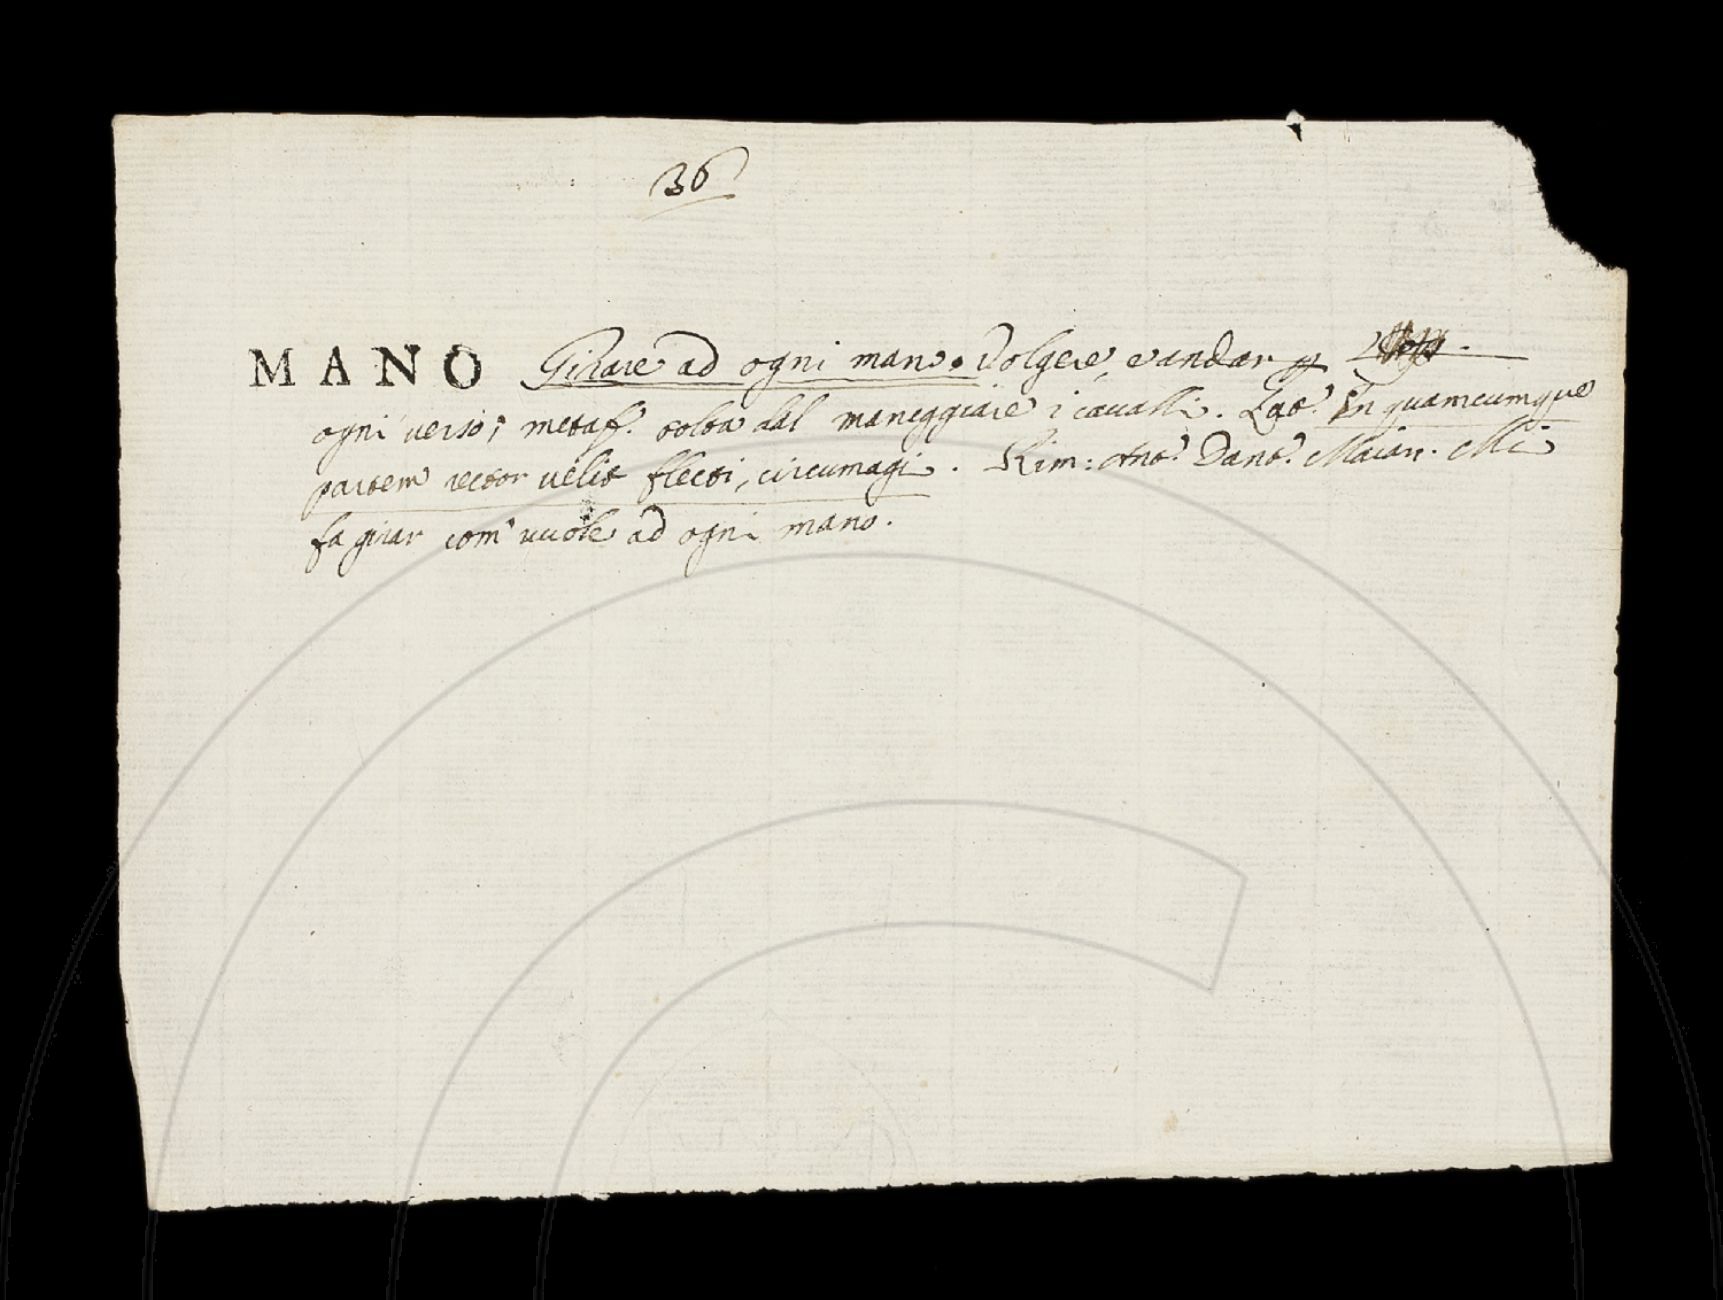 36
MANO Girare ad ogni mano. Volgere, e andar p
ogni verso; metaf. tolta dal maneggiare i cavalli. Lat. In quamcumque
partem rector velit flecti, circumagi. Rim: Ant. Dant. Maian. Mi
fa girar com' vuole ad ogni mano.